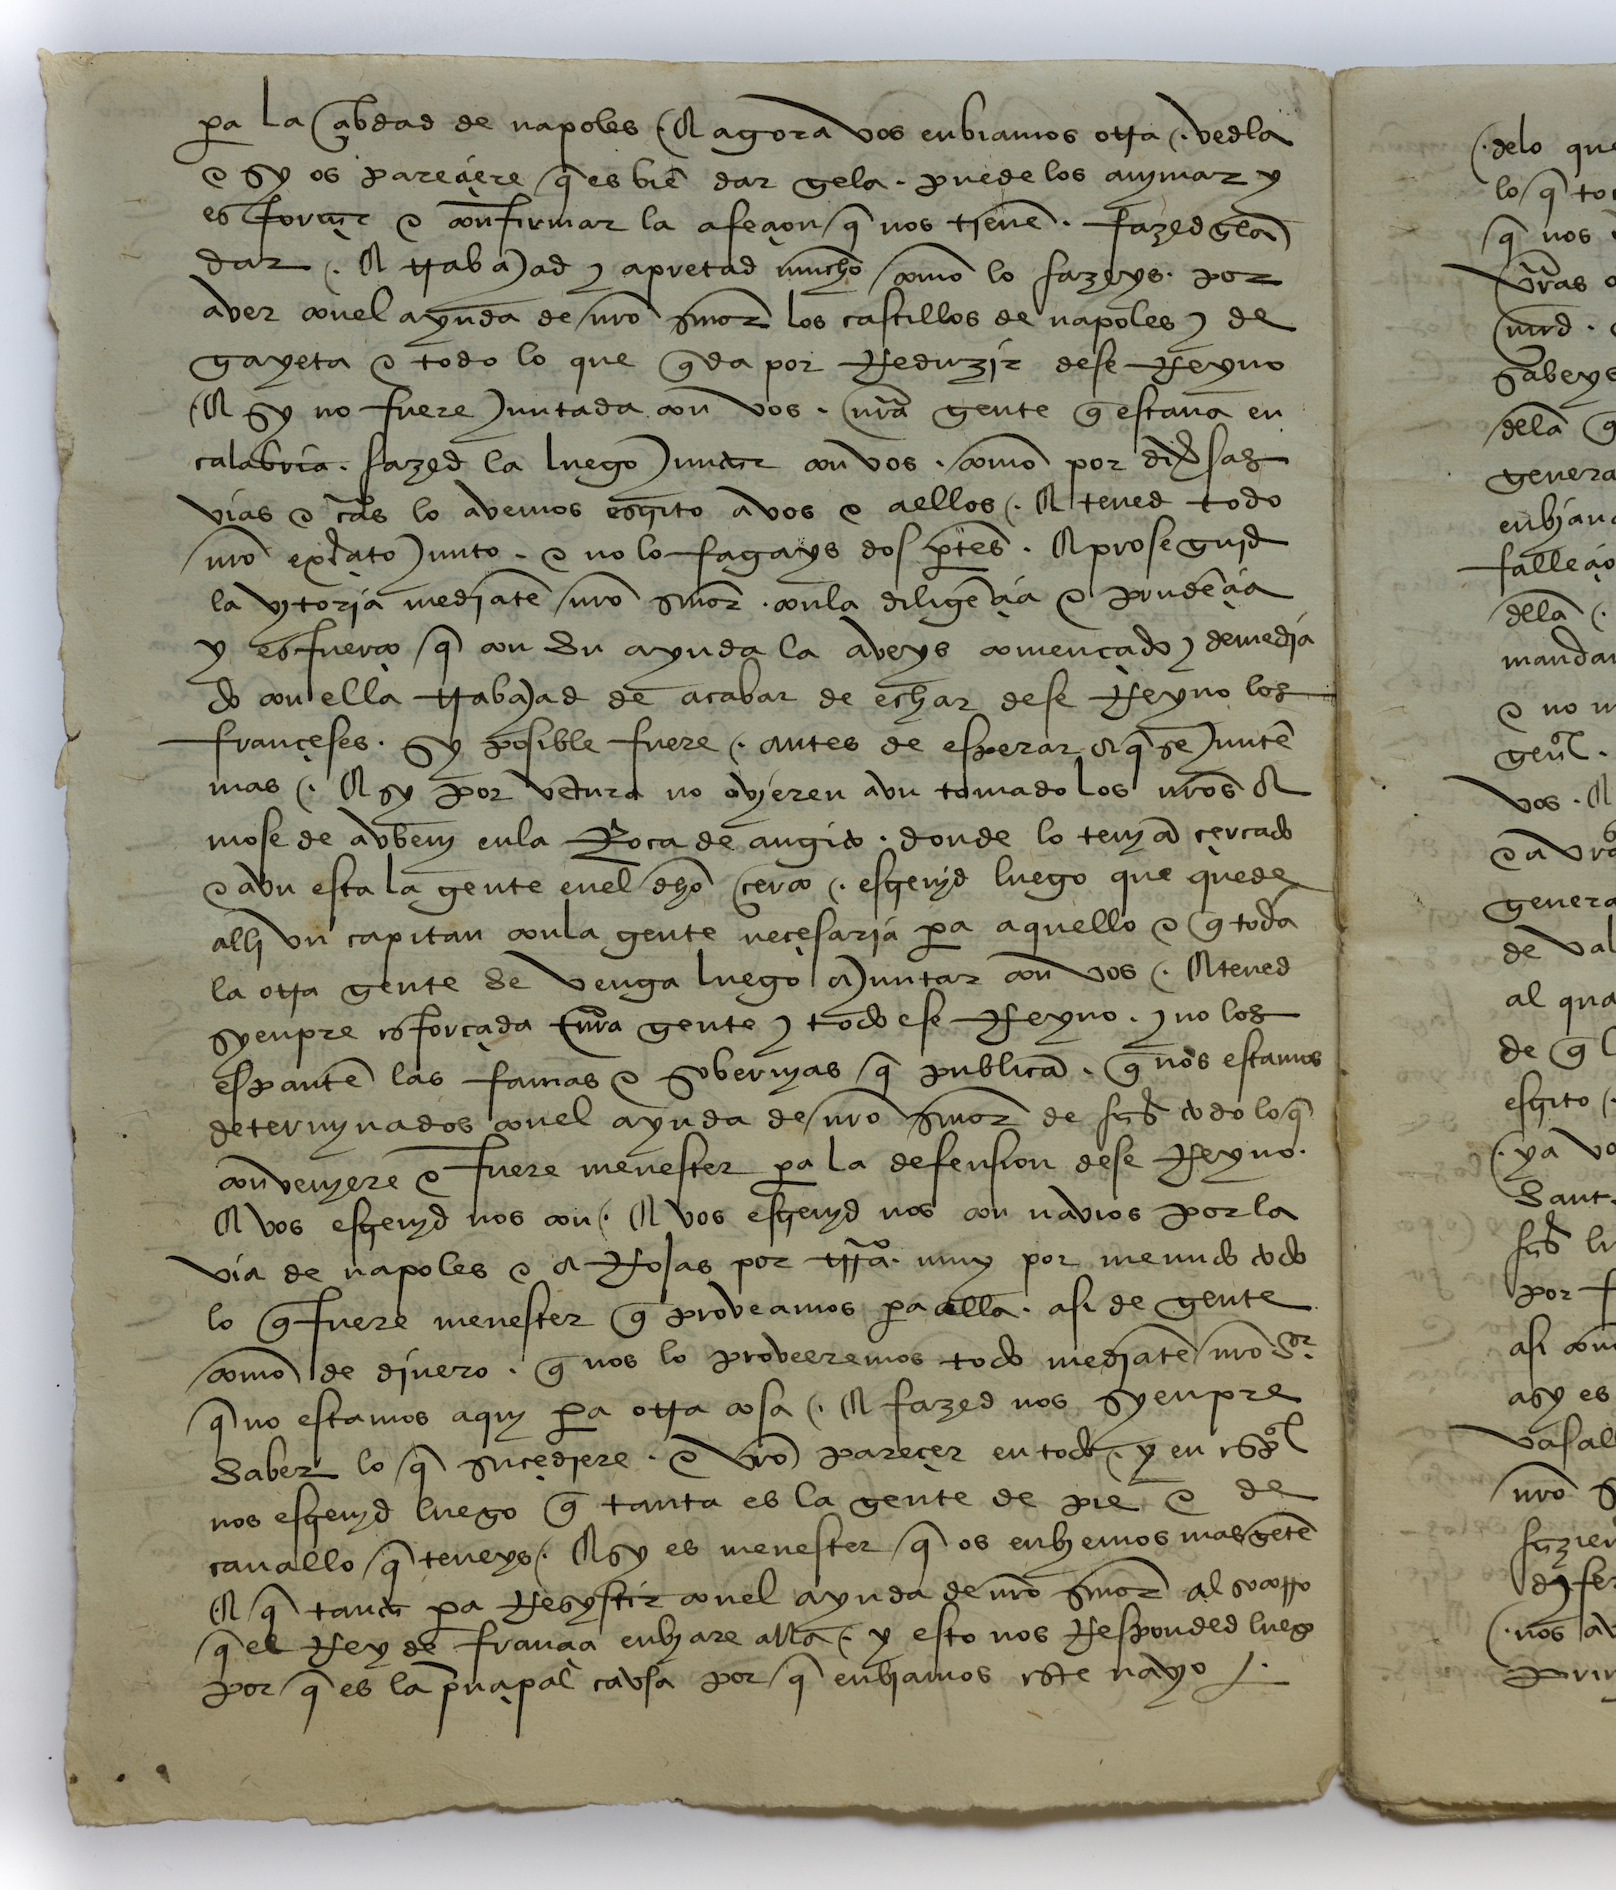 pa la çibdad de napoles (. A agora vos enbiamos otra (. vedla
e sy os pareçiere q̃ es biẽ dar gela . puede los anymar y
esforçar e confirmar la afeçion q̃ nos tienẽ . fazed gela
dar (. A trabajad y apretad mucho como lo fazeys . por
aver conel ayuda de nr̃o señor los castillos de napoles y de
gayeta e todo lo que q̃da por Reduzir dese Reyno
(. A sy no fuere juntada con vos . nr̃a gente q̃ estava en
calabria . fazed la luego juntar con vos . como por diũsas
vias e cr̃as lo avemos escrito a vos e a ellos (. A tened todo
nr̃o exerçito junto . e no lo fagays dos ptes . A proseguid
la vytoria mediãte nr̃o señor . conla diligẽçia e prudẽçia
y esfuerço q̃ con su ayuda la aveys començado y demedia
do con ella trabajad de acabar de echar dese Reyno los
françeses . sy posible fuere (. antes de esperar a q̃ se jũtẽ
mas (. A sy por vẽtura no ovieren avn tomado los nr̃os A
mose de avbeny enla Roca de angito . donde lo teniã çercado
e avn esta la gente enel dho çerco (. escrevid luego que quede
alli vn capitan conla gente neçesaria pa aquello e q̃ toda
la otra gente se venga luego a juntar con vos (. A tened
syenpre esforçada nr̃a gente y todo ese Reyno . y no los
espantẽ las famas e sobervyas q̃ publicã . q̃ nos estamos
determynados conel ayuda de nr̃o señor de fazer todo lo q̃
convenyere e fuere menester pa la defension dese Reyno .
A vos escrevid nos con (. A vos escrevid nos con navios por la
via de napoles e A Rojas por trr̃a . muy por menudo todo
lo q̃ fuere menester q̃ proveamos pa alla . asi de gente
como de dinero . q̃ nos lo proveeremos todo mediãte nr̃o sor
q̃ no estamos aquy pa otra cosa (. A fazed nos syenpre
saber lo q̃ suçediere . e vr̃o pareçer en todo (. y en espeçial
nos escrevid luego q̃ tanta es la gente de pie e de
cavallo q̃ teneys (. A sy es menester q̃ os enbiemos mas gẽte
(. A q̃ tanta pa Resystir conel ayuda de nr̃o señor al socorro
q̃ el Rey de françia enbiare alla (. y esto nos Responded luego
por q̃ es la prinçipal cavsa por q̃ enbiamos este navyo /.
(. delo que
lo q̃
q̃ nos
vr̃as
mrd .
sabeys
dela q̃
genera
enbian
falleçio
della (.
mandar
e no
genal .
vos . A
genera
de val
al qua
de q̃
escrito (.
(. ya vo
sant
por f
asi com
asy es
vasall
nr̃o
dyfer
(. nos av
prin